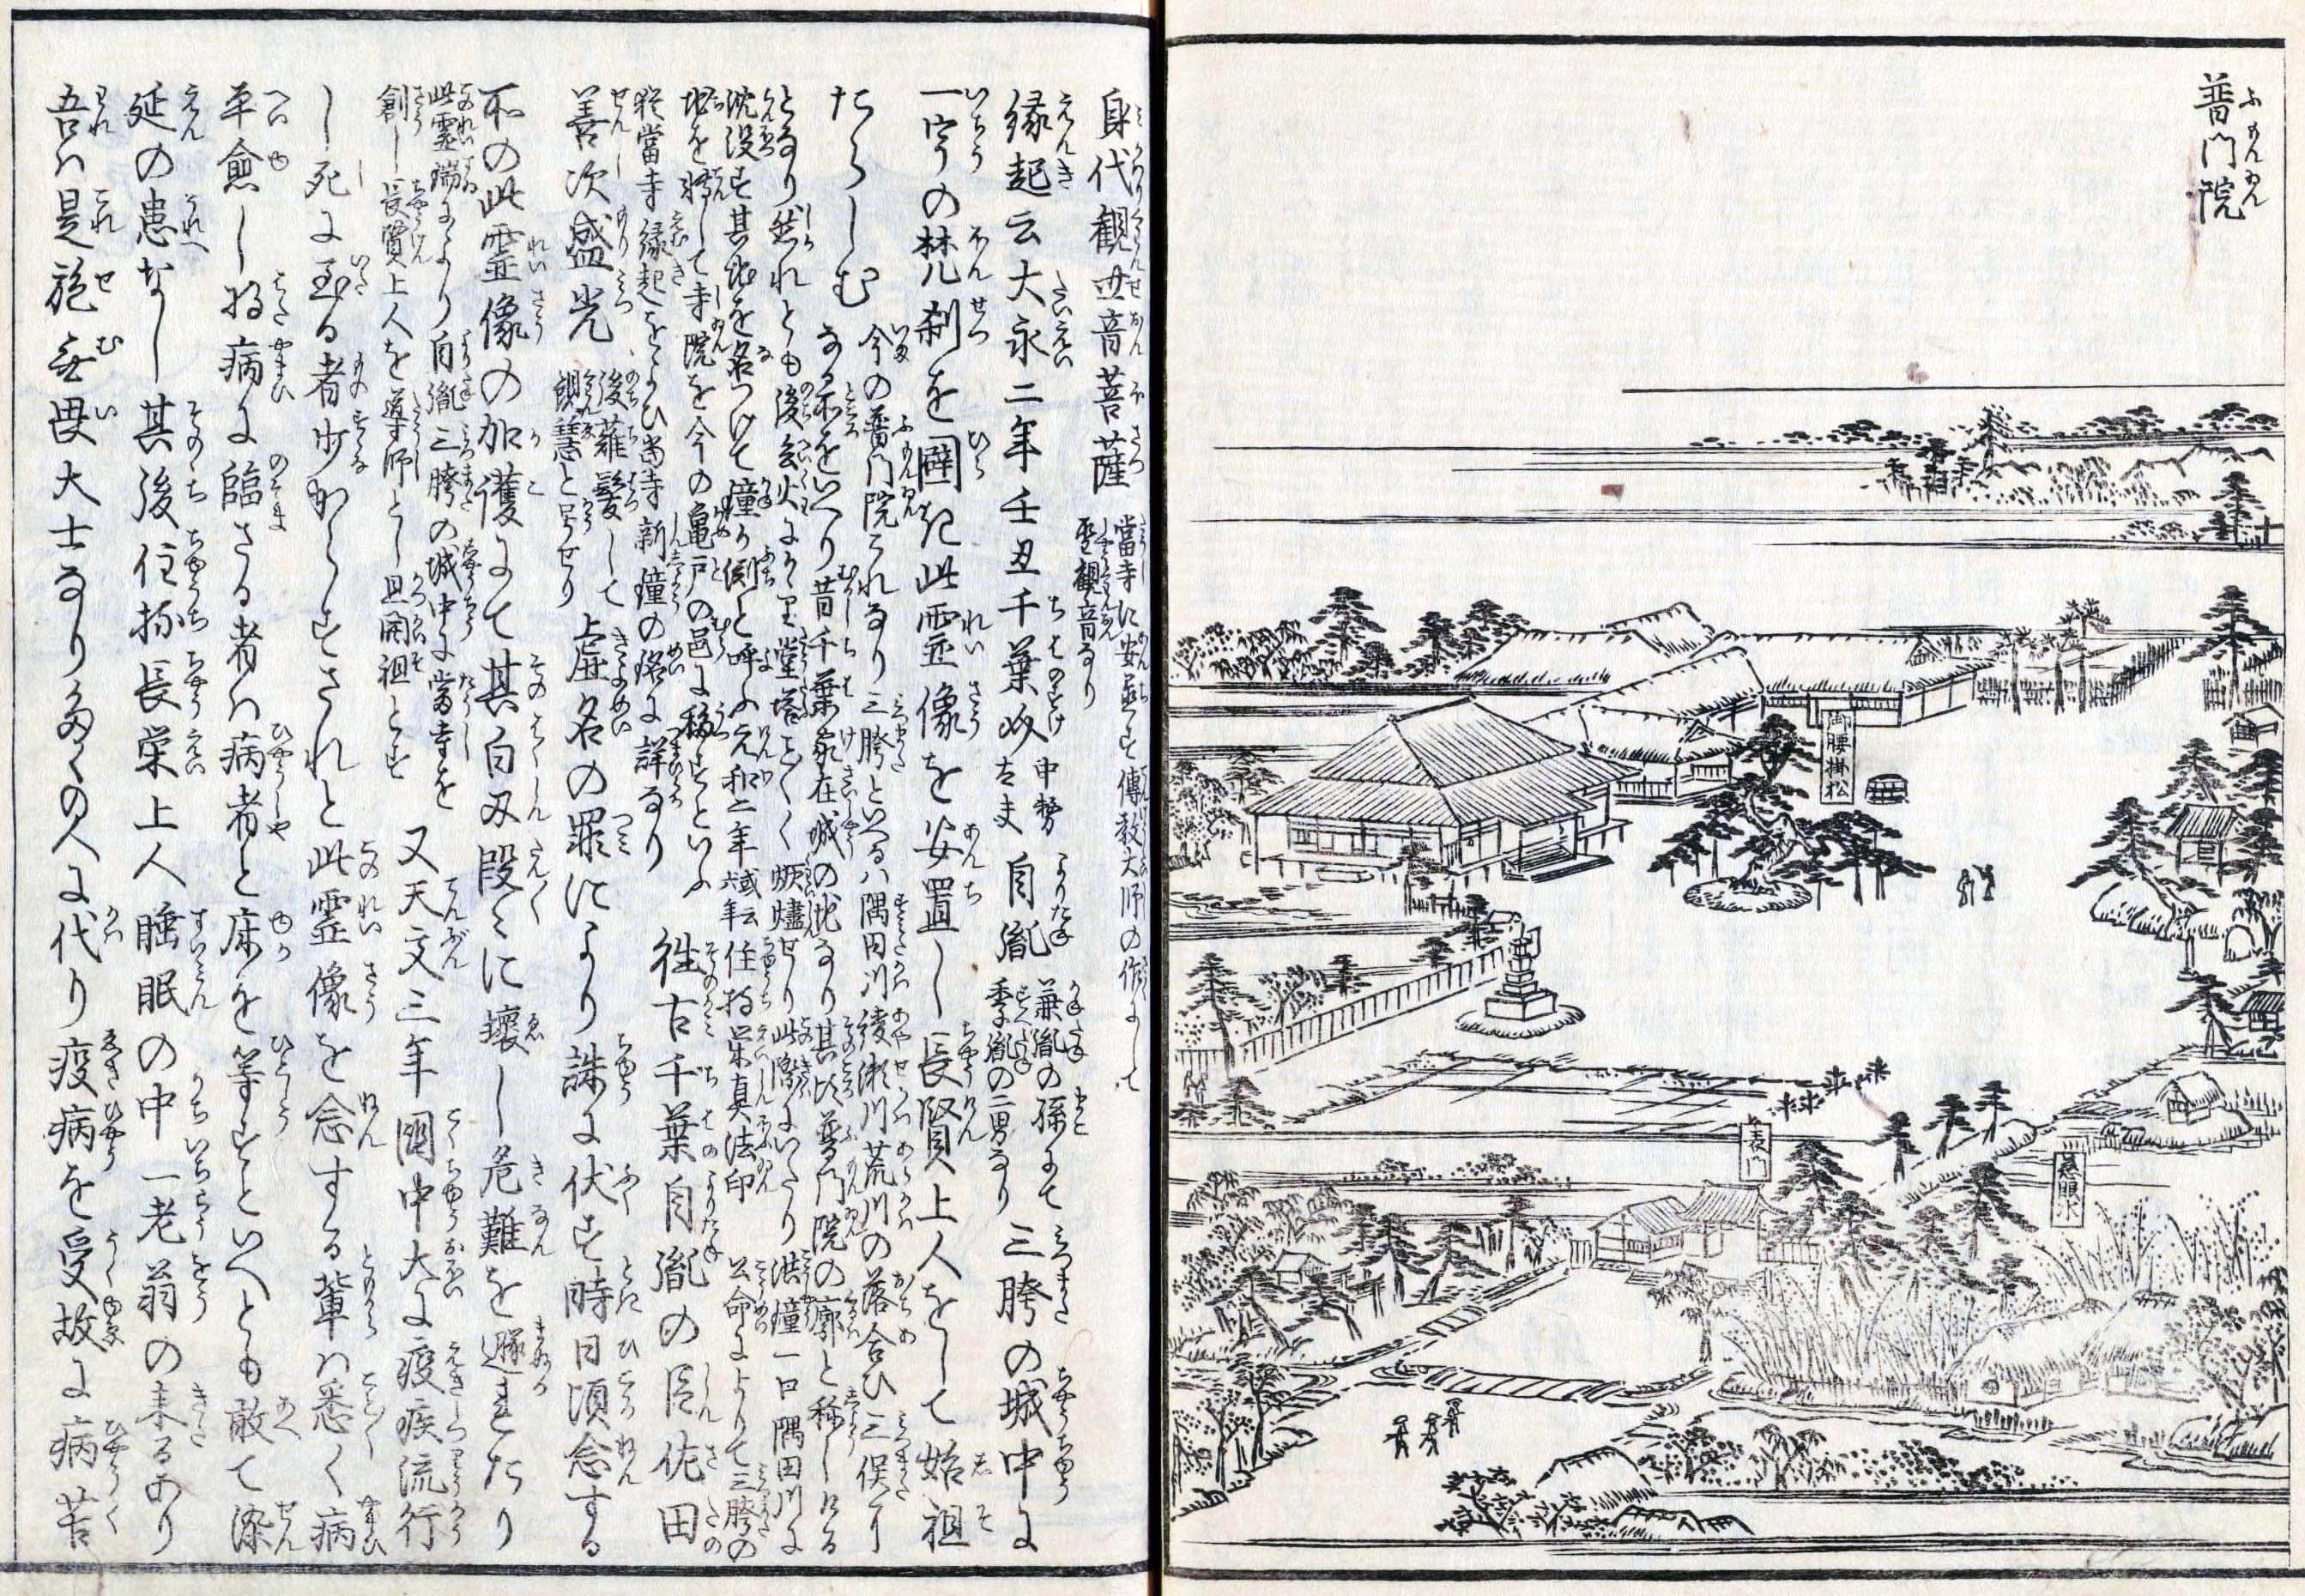 普門院
ふもんゐん
御腰掛松
表門
慈眼水
身代観世音菩薩 當寺に安置す傳教大師の作にして
聖観音なり
縁起云大永二年壬丑千葉介 中務 自胤 兼胤の孫にて 三胯の城中に
太夫 季胤の二男なり
一宇の梵刹を闢き此霊像を安置し長賢上人をして始祖
たらしむ 今の普門院これなり三胯といへるハ隅田川綾瀬川荒川の落合ひ三俣
なる所をいへり昔千葉家在城の地なり其頃普門院の廓と称しける
となり然れとも後兵火にかゝり堂塔こと〴〵く焼燼せり此際にいたり洪鐘一口隅田川に
沈没す其地を名つけて鐘か淵と呼ふ元和二年 或云六年 住持栄真法印 公命によりて三胯の
地を轉して寺院を今の亀戸の邑に移すといふ
猶當寺縁起をよひ當寺新鐘の銘に詳なり 往古千葉自胤の臣佐田
善次盛光 後薙髪して 虚名の罪により誅に伏す時日頃念する
観慧と号せり
所の此霊像の加護にて其白刃段〻に壊し危難を遁れたり
此霊瑞により自胤三胯の城中に當寺を 又天文三年國中大に疫疾流行
創し長賢上人を導師とし且開祖とす
し死に至る者少からすされと此霊像を念する輩ハ悉く病
平愈し将病に臨さる者ハ病者と床を等すといへとも敢て染
延の患なし其後住持長栄上人睡眠の中一老翁の来るあり
吾ハ是施無畏大士なり多くの人に代り疫病を受故に病苦